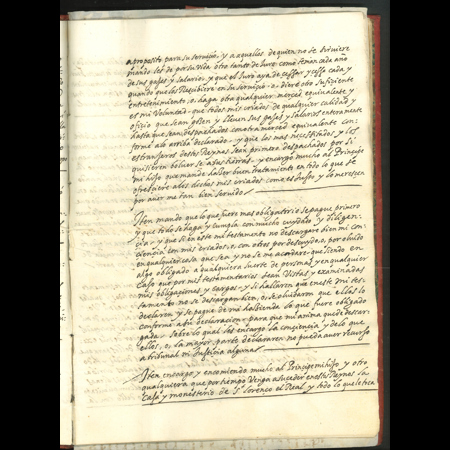 a proposito para su servicio, y a aquellos de quien no se sirviere
mando les dé por su vida otro tanto de Juro como tenian cada año
de sus gajes y salario, y que el Juro aya de cessar y cesse cada y
quando que los Recibiere en su servicio, o, diere otro suficiente
entretenimiento, o, haga otra qualquier merced equivalente y
es mi Voluntad, que todos mis criados de qualquier calidad y
oficio que sean gozen y lleven sus gajes y salarios enteramente
hasta que sean despachados con otra merced equivalente con-
forme a lo arriba declarado, y que los mas necesitados, y los
estranjeros destos Reynos sean primero despachados por si
quisieren bolver se a sus tierras, y encargo mucho al Principe
mi hijo que mande hazer buen tratamiento en todo lo que se
ofresciere a los dichos mis criados, como es Justo y lo meresçen
por aver me tan bien servido
Iten mando que lo que fuere mas obligatorio se pague primero
y que todo se haga y cumpla con mucho cuydado y diligen-
cia, y que si en este mi testamento no descargare bien mi con-
ciencia con mis criados, o, con otros por descuydo, o, por olvido
en qualquier cosa que sea y no se me acordare, que siendo en
algo obligado a qualquiera suerte de personas, y en qualquier
Caso que por mis testamentarios sean Vistas, y examinadas
mis obligaçiones y cargos, y si hallaren que en este mi tes-
tamento no se descargan bien, o, se olvidaron que ellos lo
declaren y se pague de mi hazienda lo que fuere obligado
conforme a su declaracion, para que mi anima quede descar-
gada, sobre lo qual les encargo la conçiencia y de lo que
ellos, o, la mayor parte declararen no pueda aver recurso
a tribunal ni Justicia alguna
Iten encargo, y encomiendo mucho al Principe mi hijo, y otro
qualquiera que por tiempo Venga a suceder en estos Reynos la
Casa y monesterio de S. Lorenço el Real, y todo lo que le toca